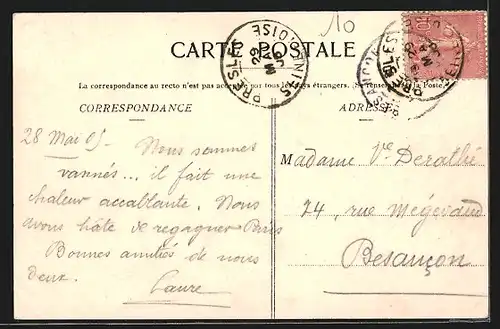 10
CARTE POSTALE
PRESLES
SEINE-ET-OISE
29 MAI 05
La correspondance au recto n'est pas acceptée par tous les pays étrangers. Se renseigner à la Poste.
CORRESPONDANCE
ADRESSE
28 Mai 05
Nous sommes
vannés... il fait une
chaleur accablante. Nous
avons hâte de regagner Paris
Bonnes amitiés de nous
deux.
Laure
Madame Ve Derathé
24, rue Mégevand
Besançon